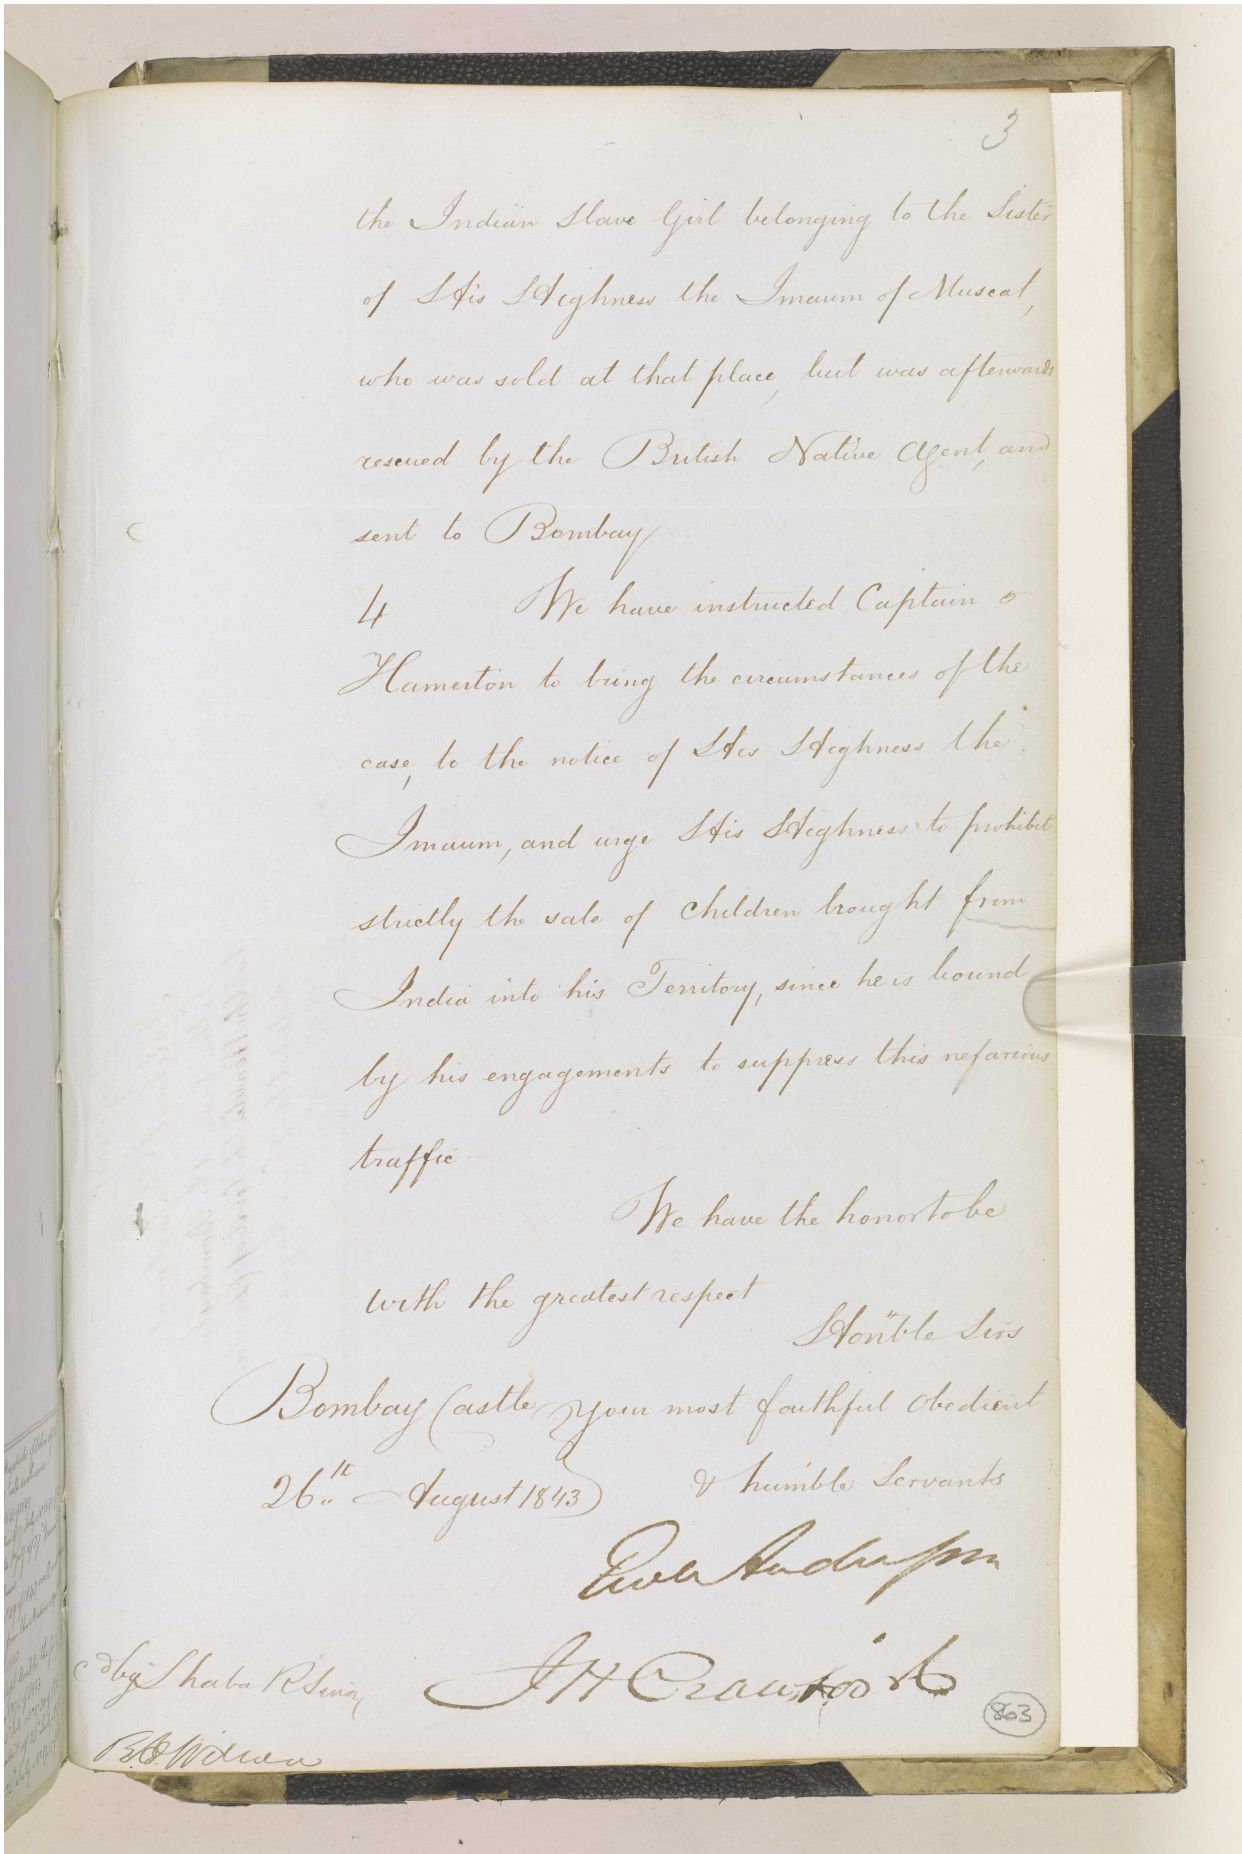 3
the Indian Slave Girl belonging to the Sister
of His Highness the Imaum of Muscat,
who was sold at that place, but was afterwards
rescued by the British Native Agent, and
sent to Bombay
4 We have instructed Captain
Hamerton to bring the circumstances of the
case, to the notice of His Highness the
Imaum, and urge His Highness to prohibit
strictly the sale of children brought from
India into his Territory, since he is bound
by his engagements to suppress this nefarious
traffic
We have the honor to be
with the greatest respect
Hon'ble Sirs
Bombay Castle your most faithful obedient
26th August 1843 & humble Servants
Anderson
J H Crawford
by Shaba
863